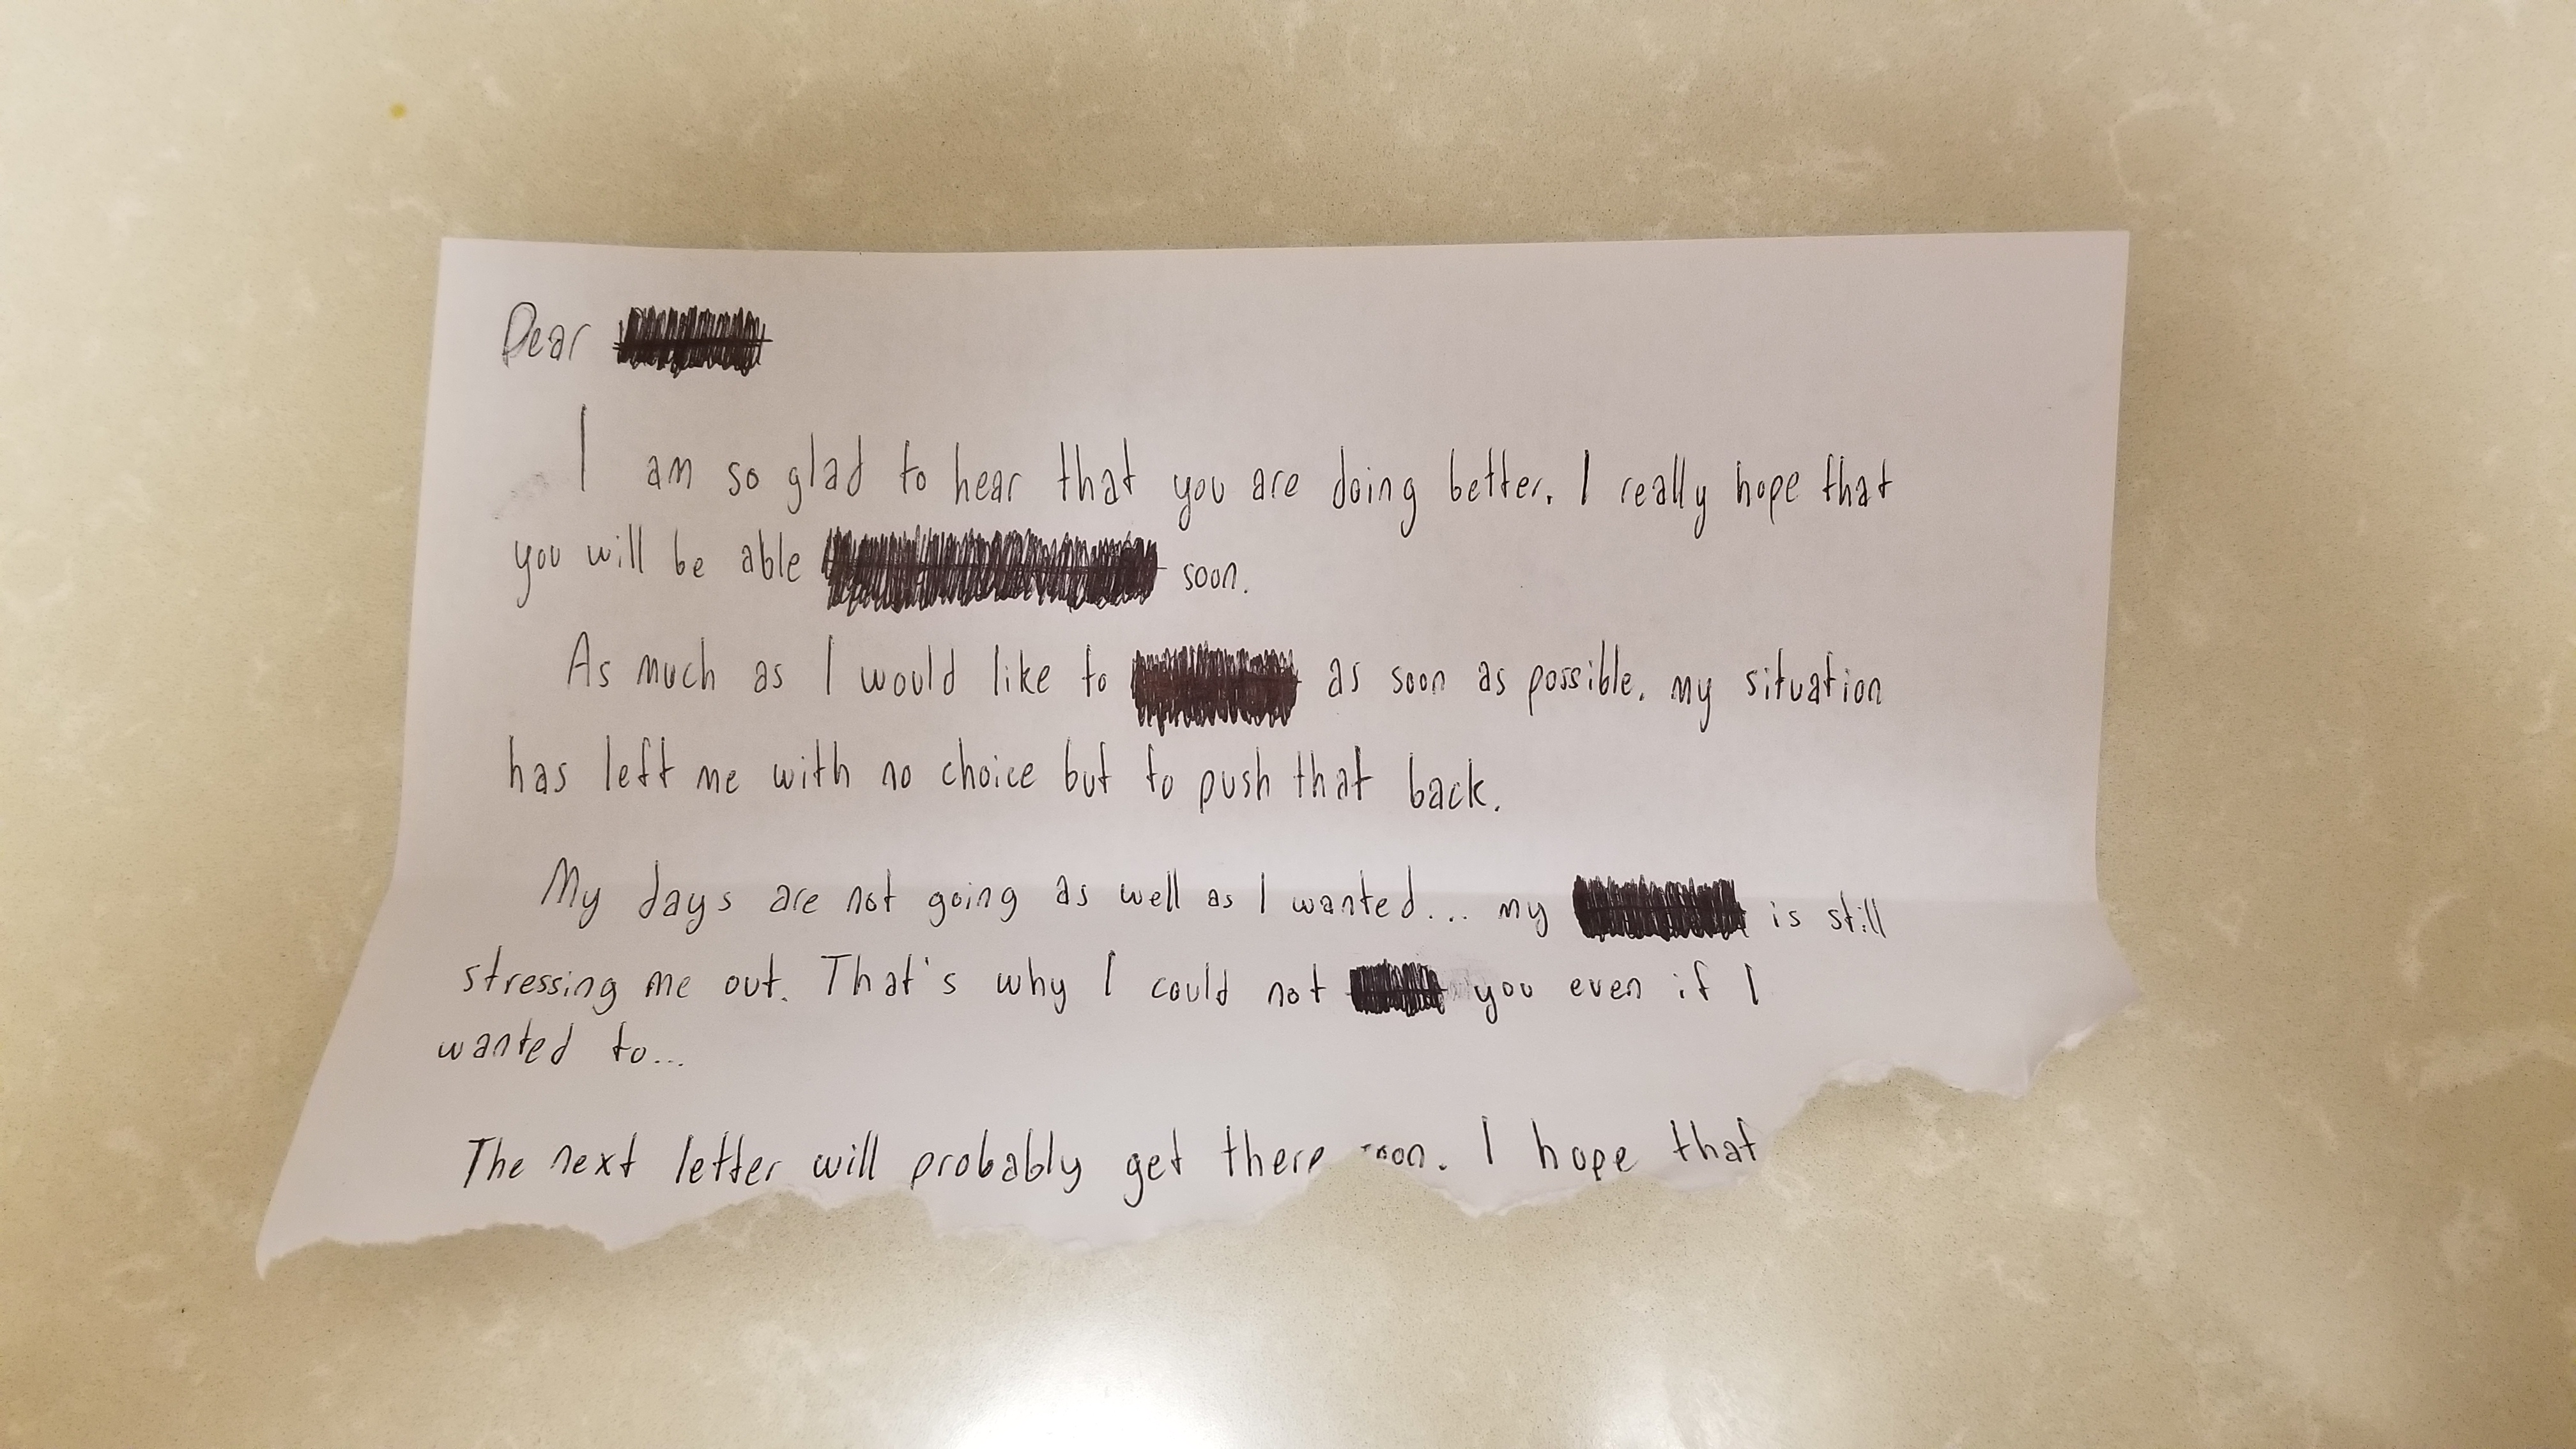 Dear
I am so glad to hear that you are doing better. I really hope that
you will be able soon.
As much as I would like to as soon as possible. my situation
has left me with no choice but to push that back.
My days are not going as well as I wanted... my is still
stressing me out. That's why I could not you even if I
wanted to...
The next letter will probably get there I hope that